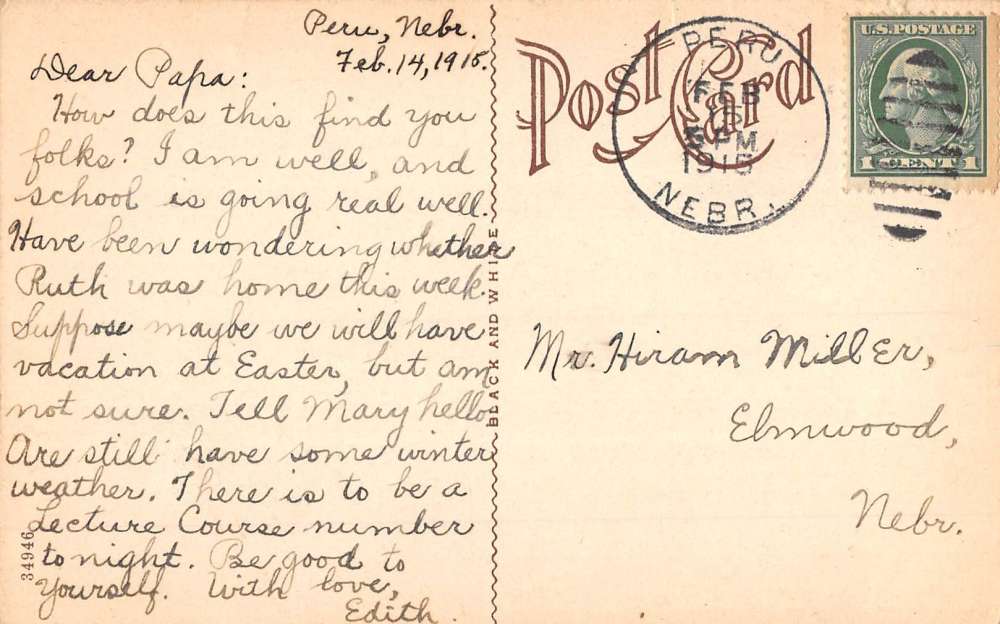 Peru, Nebr.
Feb. 14, 1915.
Dear Papa:
How does this find you
folks? I am well, and
school is going real well.
Have been wondering whether
Ruth was home this week.
Suppose maybe we will have
vacation at Easter, but am
not sure. Tell Mary hello.
Are still have some winter
weather. There is to be a
Lecture Course number
to night. Be good to
Yourself. With love,
Edith.
34946
BLACK AND WHITE
Post Card
PERU
FEB
15
5 PM
1915
NEBR.
U.S. POSTAGE
1 CENT 1
Mr. Hiram Miller,
Elmwood,
Nebr.